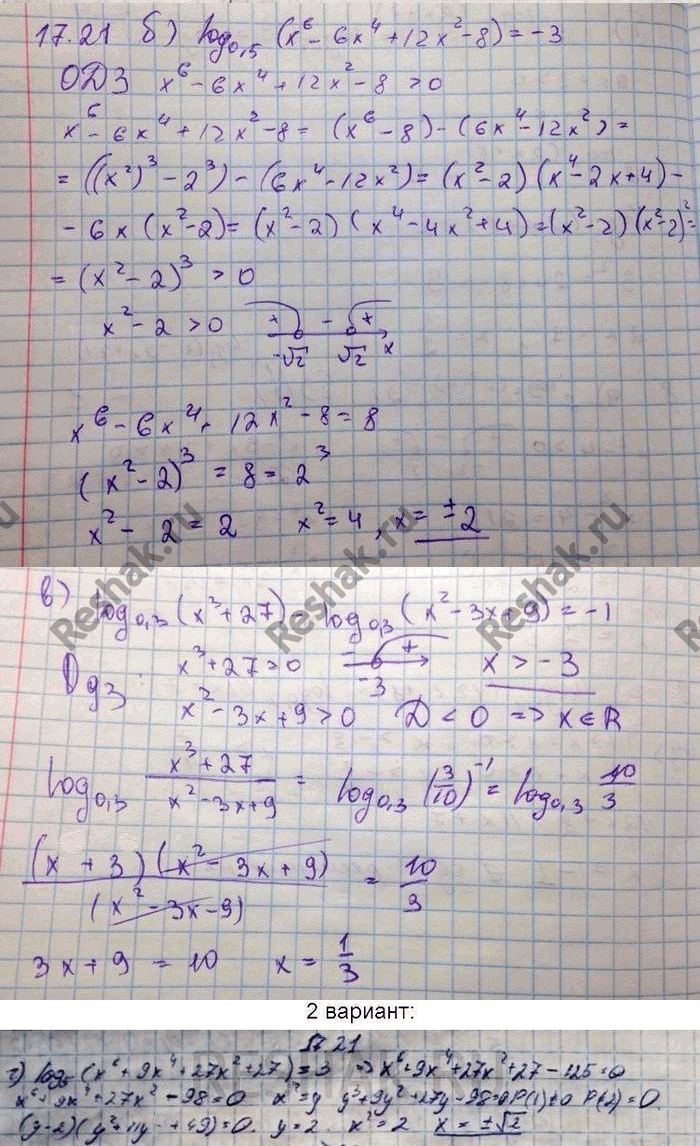 17.21 б) log₀,₅ (x⁶ - 6x⁴ + 12x² - 8) = -3
ОДЗ x⁶ - 6x⁴ + 12x² - 8 > 0
x⁶ - 6x⁴ + 12x² - 8 = (x⁶ - 8) - (6x⁴ - 12x²) =
= ((x²)³ - 2³) - (6x⁴ - 12x²) = (x² - 2) (x⁴ - 2x + 4) -
- 6x (x² - 2) = (x² - 2) (x⁴ - 4x² + 4) = (x² - 2) (x² - 2)² =
= (x² - 2)³ > 0
x² - 2 > 0 + - +
-√2 √2 x
x⁶ - 6x⁴ + 12x² - 8 = 8
(x² - 2)³ = 8 = 2³
x² - 2 = 2 x² = 4, x = ±2
Reshak.ru Reshak.ru Reshak.ru
в) log₀,₃ (x³ + 27) - log₀,₃ (x² - 3x + 9) = -1
ОДЗ: x³ + 27 > 0 - + x > -3
-3
x² - 3x + 9 > 0 D < 0 => x ∈ R
log₀,₃ (x³ + 27)/(x² - 3x + 9) = log₀,₃ (3/10)⁻¹ = log₀,₃ 10/3
(x + 3) (x² - 3x + 9) / (x² - 3x - 9) = 10/3
3x + 9 = 10 x = 1/3
2 вариант:
17.21
г) log₅ (x⁶ + 9x⁴ + 27x² + 27) = 3 => x⁶ + 9x⁴ + 27x² + 27 - 125 = 0
x⁶ + 9x⁴ + 27x² - 98 = 0 x² = y y³ + 9y² + 27y - 98 = 0 P(1) ≠ 0 P(2) = 0.
(y - 2)(y² + 11y + 49) = 0. y = 2. x² = 2 x = ±√2